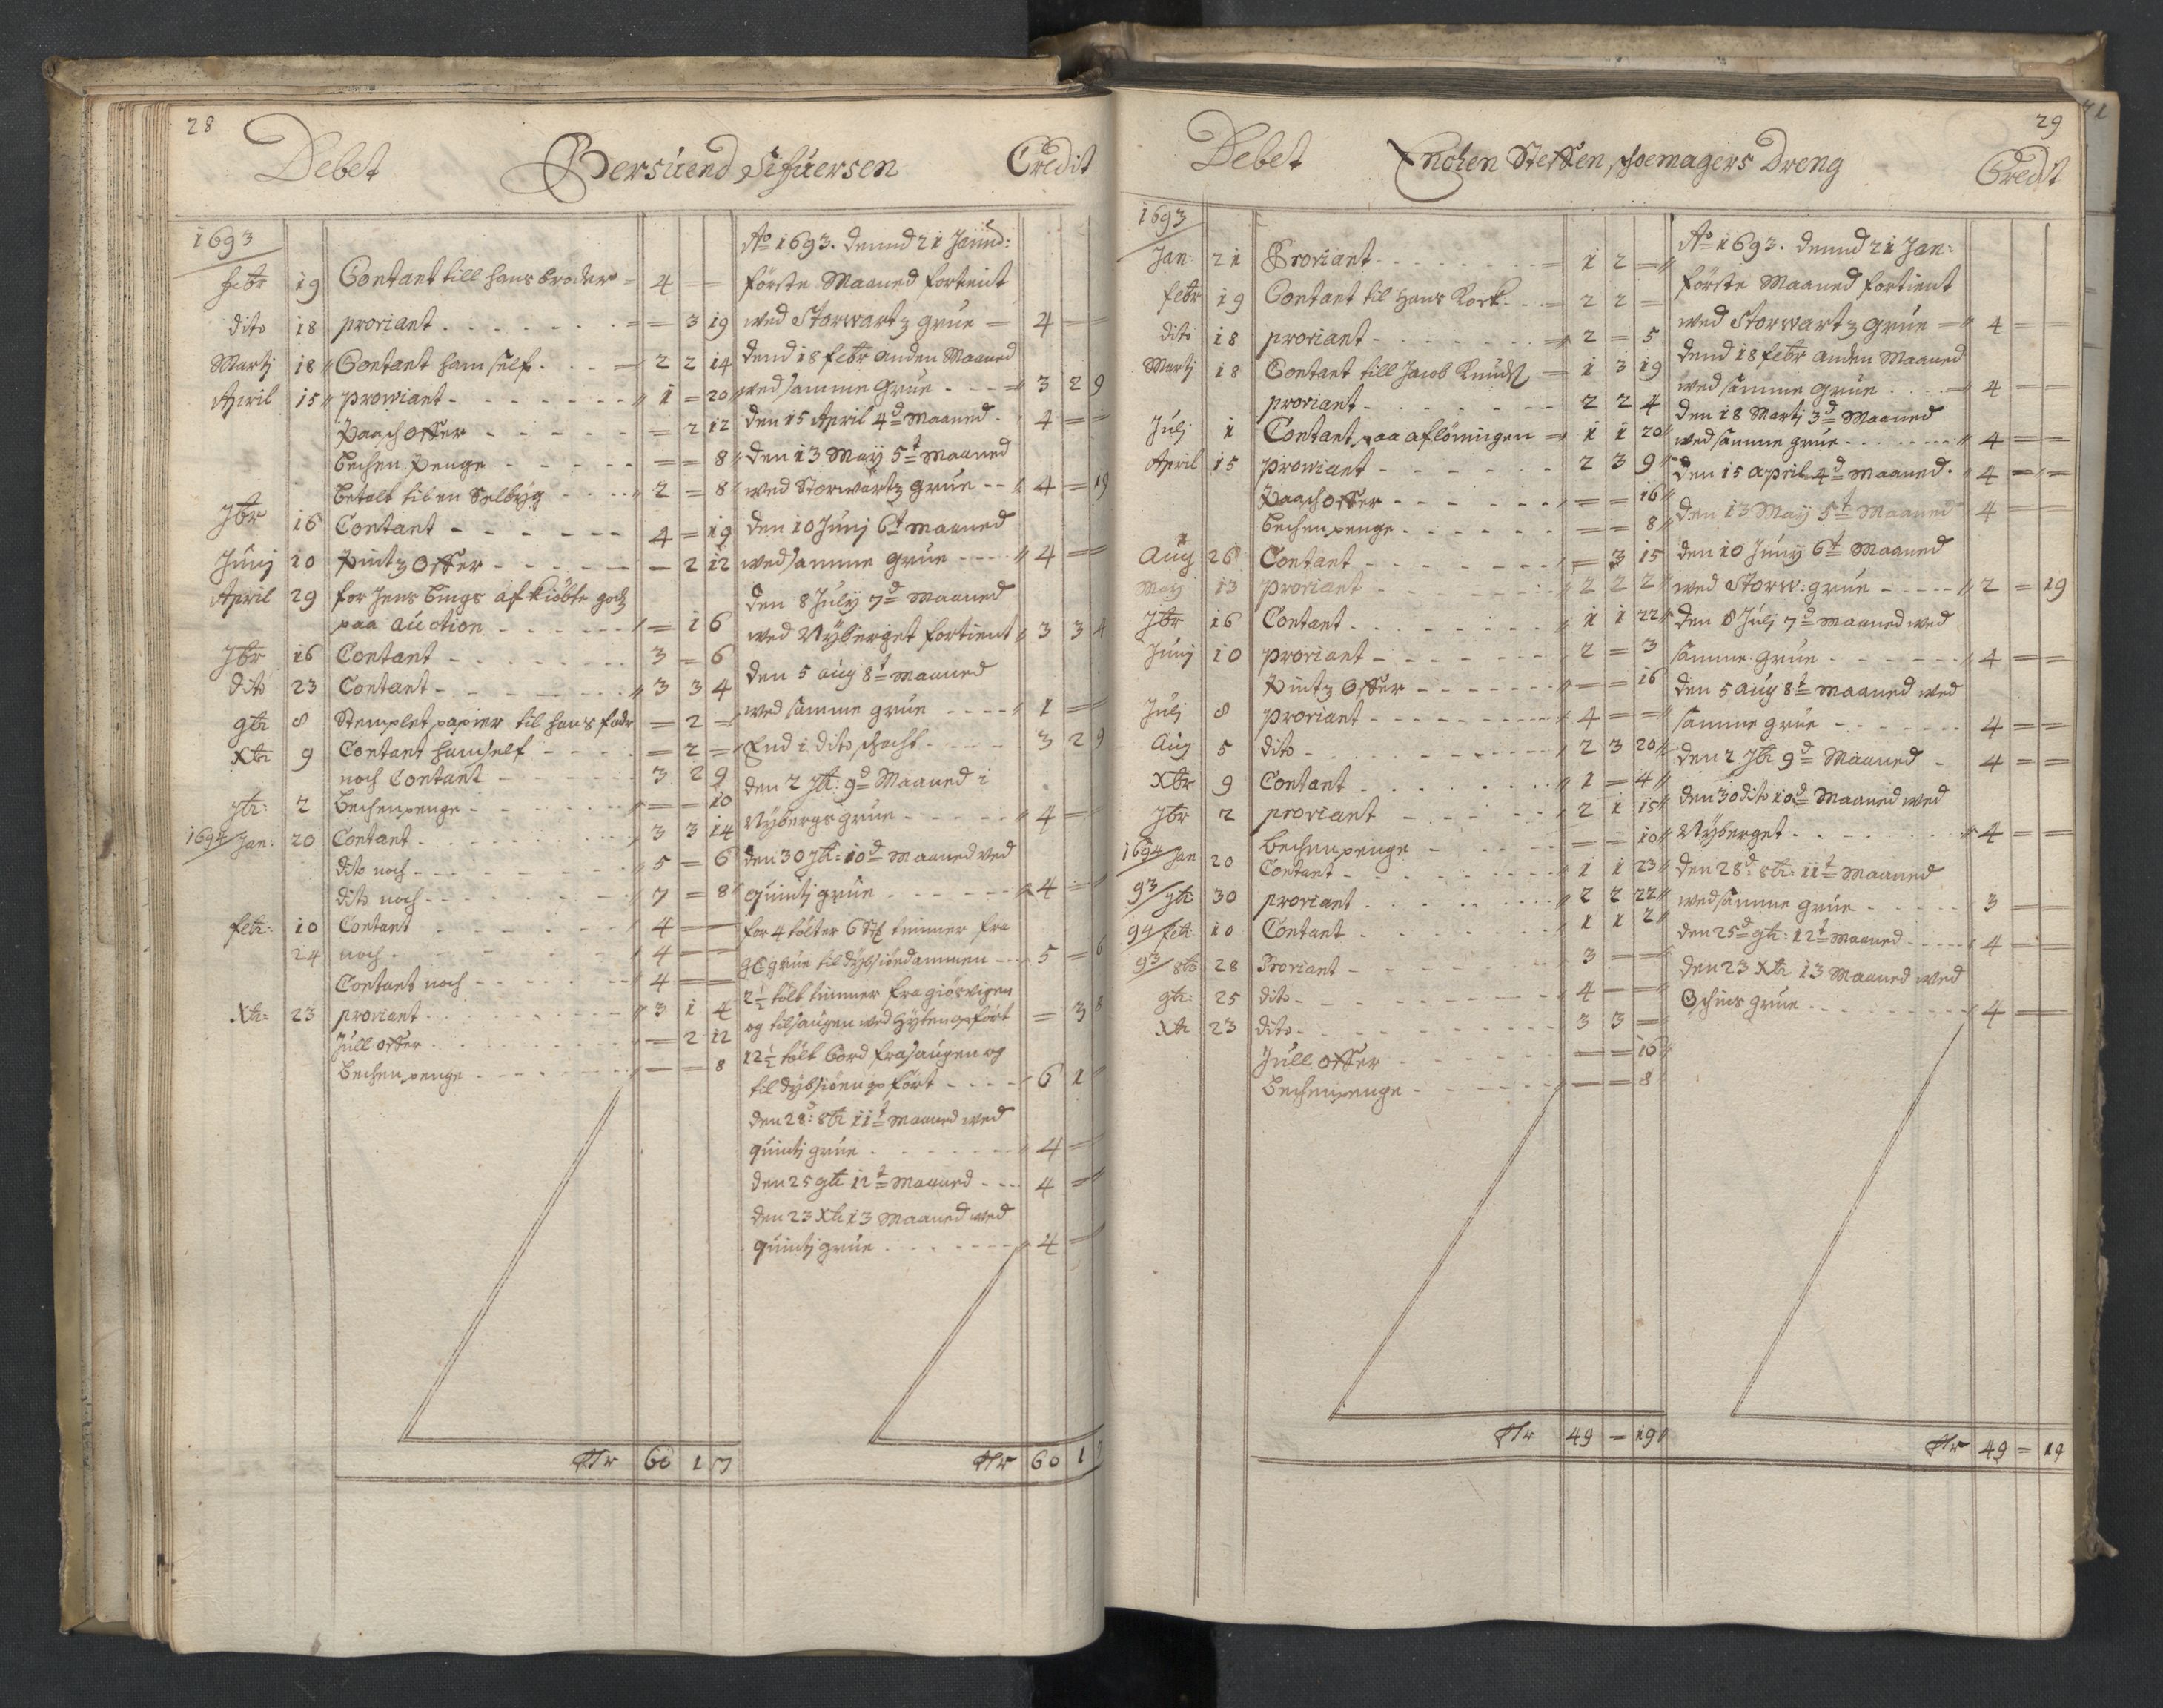 28
Debet Bersuend Sifuersen Credit
1693
febr 19 Contant till hans broder = 4 — —
dito 18 proviant - - - = — 3 19
Martj 18 Contant ham self - - - 2 2 14
April 15 prowiant - - - 1 = 20
Paach offer - - - = 2 12
bechen penge - - - = = 8
betalt til en Selbyg - - - 2 = 8
7br 16 Contant - - - 4 = 19
Junj 10 Pintz offer - - - — 2 12
April 29 for Jens bings af kiöbte godz
paa auction - - - = 1 6
7br 16 Contant - - - 3 = 6
dito 23 Contant - - - 3 3 4
9br 8 Stemplet papier til hans fader = 2 =
Xbr 9 Contant hamself - - - = 2 =
noch Contant - - - 3 2 9
7br: 2 bechenpenge - - - = — 10
1694/Jan: 20 Contant - - - 3 3 14
dito noch - - - 5 = 6
dito noch - - - 7 = 8
febr: 10 Contant - - - 4 — —
24 noch - - - 4 — —
Contant noch - - - 4 — —
Xbr: 23 proviant - - - 3 1 4
Jull offer - - - — 2 12
bechen penge - - - — — 8
Rdr 60 1 7
Ao 1693. dennd 21 Janud:
förste Maaned fortient
wed Storwartz grue — 4 — =
dend 18 febr anden Maaned
wed samme grue - - - 3 2 9
den 15 April 4d Maaned - 4 = =
den 13 May 5t Maaned
wed Storwartz grue - - 4 = 19
den 10 Junj 6t maaned
wed samme grue - - - 4 = =
den 8 July 7d Maaned
wed Nyberget fortient 3 3 4
den 5 aug 8t maaned
wed samme grue - - - 1 = =
End i dito schacht - - - 3 2 9
den 2 7br: 9d Maaned i
Nybergs grue - - - 4 =
den 30 7br: 10d Maaned wed
quintj grue - - - 4 = =
for 4 tölter 6 St timmer fra
gl grue til dybsiödammen - - - 5 = 6
2½ tölt timmer fra giösvigen
og til saugen wed hyten opfört = 3 8
12½ tölt bord fra saugen og
til dybsiöen op fört - - - 6 1 =
den 28d: 8br 11t Maaned wed
quintj grue - - - 4 =
den 25 9br 12t Maaned - - - 4 =
den 23 Xbr 13 Maaned wed
quintj grue - - - 4 =
Rdr 60 1 7
29
Debet Enchen Steffen, shoemagers Dreng Credit
1693
Jan: 21 Proviant - - - 1 2 =
febr 19 Contant til Hans Kork - - 2 2 =
dito 18 proviant - - - 2 = 5
Martj 18 Contant till Jacob Knuds - 1 3 19
proviant - - - 2 2 4
Julj 1 Contant paa aflöningen = 1 1 20
April 15 prowiant - - - 2 3 9
Paach offer - - - = = 16
bechenpenge - - - = = 8
Aug 26 Contant - - - = 3 15
May 13 proviant - - - 2 2 2
7br 16 Contant - - - 1 1 22
Junj 10 proviant - - - 2 = 3
Pintz offer - - - — = 16
Julj 8 proviant - - - 4 = =
Aug 5 dito - - - 2 3 20
Xbr 9 Contant - - - 1 = 4
7br 2 proviant - - - 2 1 15
bechenpenge - - - = = 10
1694 Jan 20 Contant - - - 1 1 23
93/7br 30 proviant - - - 2 2 22
94 febr: 10 Contant - - - 1 1 2
93/8br 28 Proviant - - - 3 = =
9br: 25 dito - - - 4 — =
Xbr 23 dito - - - 3 3 =
Jull offer - - - — = 16
bechenpenge - - - — = 8
Rdr 49 = 19
Ao 1693. dennd 21 Jan:
förste Maaned fortient
wed Storwartz grue = 4 = =
dend 18 febr anden Maaned
wed samme grue - - - 4 = =
den 18 Martj 3d Maaned
wed samme grue - - - 4 = =
den 15 april 4d Maaned - 4 = =
den 13 May 5t Maaned 4 = =
den 10 Junij 6t Maaned
wed Storw: grue - - - 2 = 19
den 8 Julj 7d maaned wed
samme grue - - - 4 = =
den 5 Aug 8t maaned wed
samme grue - - - 4 = =
den 2 7br 9d Maaned - 4 = =
den 30 dito 10d Maaned wed
Nyberget - - - 4 = =
den 28d 8br: 11t Maaned
wed samme grue - - - 3 — —
den 25d 9br: 12t Maaned - - - 4 — =
den 23 Xbr 13 Maaned wed
Ochius grue - - - 4 — =
Rdr 49 = 19